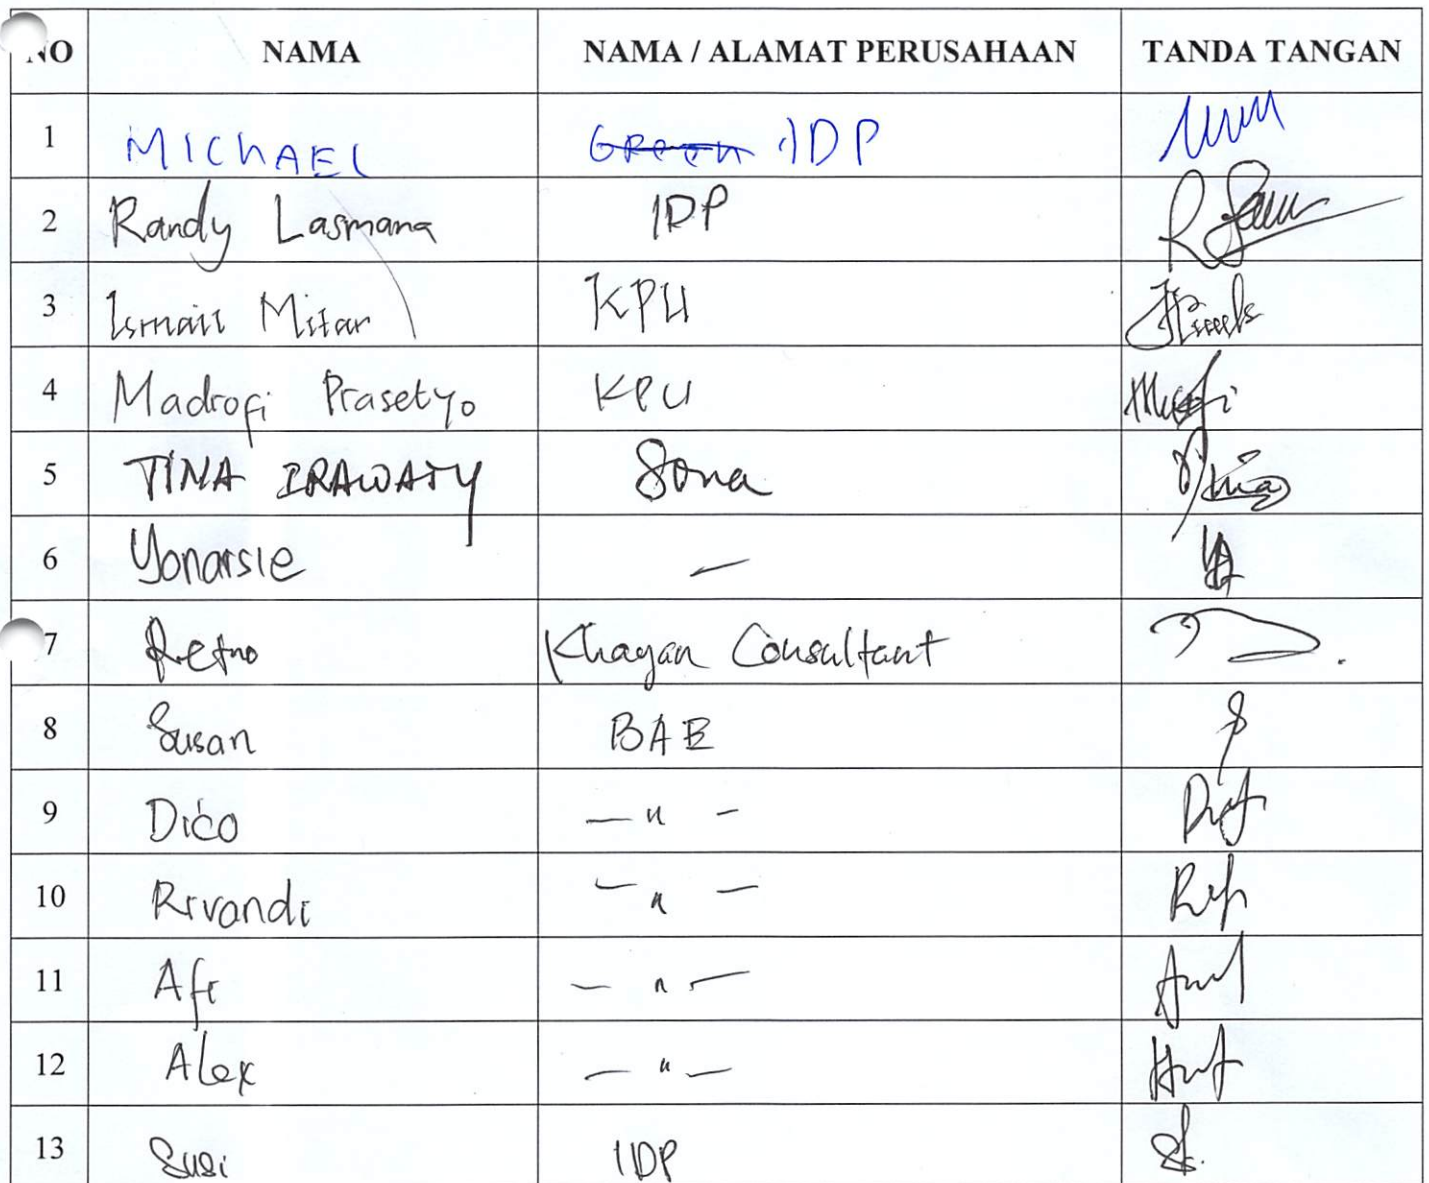 NO NAMA NAMA / ALAMAT PERUSAHAAN TANDA TANGAN
1 MICHAEL Green IDP
2 Randy Lasmana IDP
3 Ismail Mitar KPU
4 Madrofi Prasetyo KPU
5 TINA IRAWATY Sona
6 Yonarsie —
7 Retno Khagan Consultant
8 Susan BAE
9 Dico — " —
10 Rivandi — " —
11 Afi — " —
12 Alex — " —
13 Susi IDP